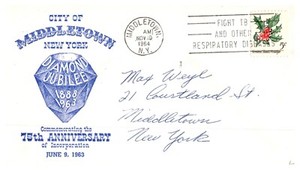 CITY OF
MIDDLETOWN
NEW YORK
DIAMOND
JUBILEE
1888
1963
Commemorating the
75th ANNIVERSARY
of Incorporation
JUNE 9, 1963
MIDDLETOWN,
AM
NOV
1964
N.Y.
FIGHT TB
AND OTHER
RESPIRATORY DISEASES
Max Weyl
21 Courtland St.
Middletown
New York